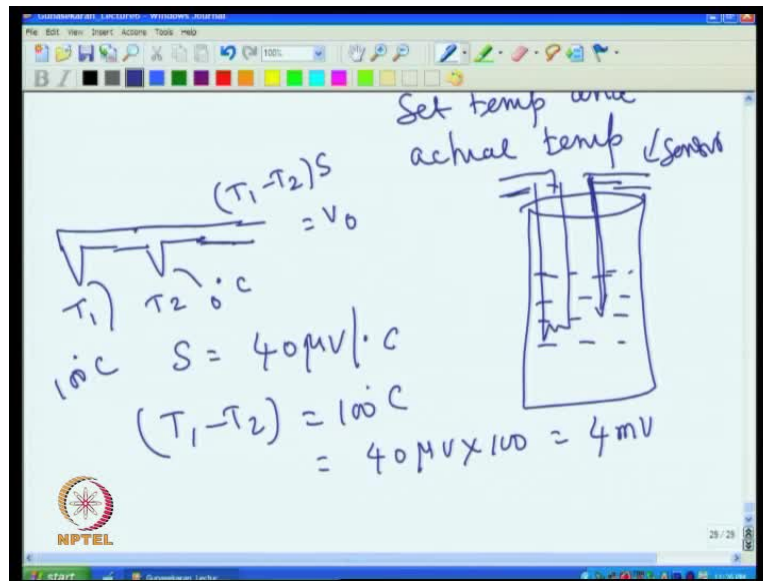 Gunasekaran_Lecture6 - Windows Journal
File Edit View Insert Actions Tools Help
100%
B I
Set temp and
actual temp
Sensor
(T₁-T₂)S
= V₀
T₁ T₂ 0°C
100°C S = 40μV/°C
(T₁-T₂) = 100°C
= 40μV×100 = 4mV
NPTEL
29 / 29
start